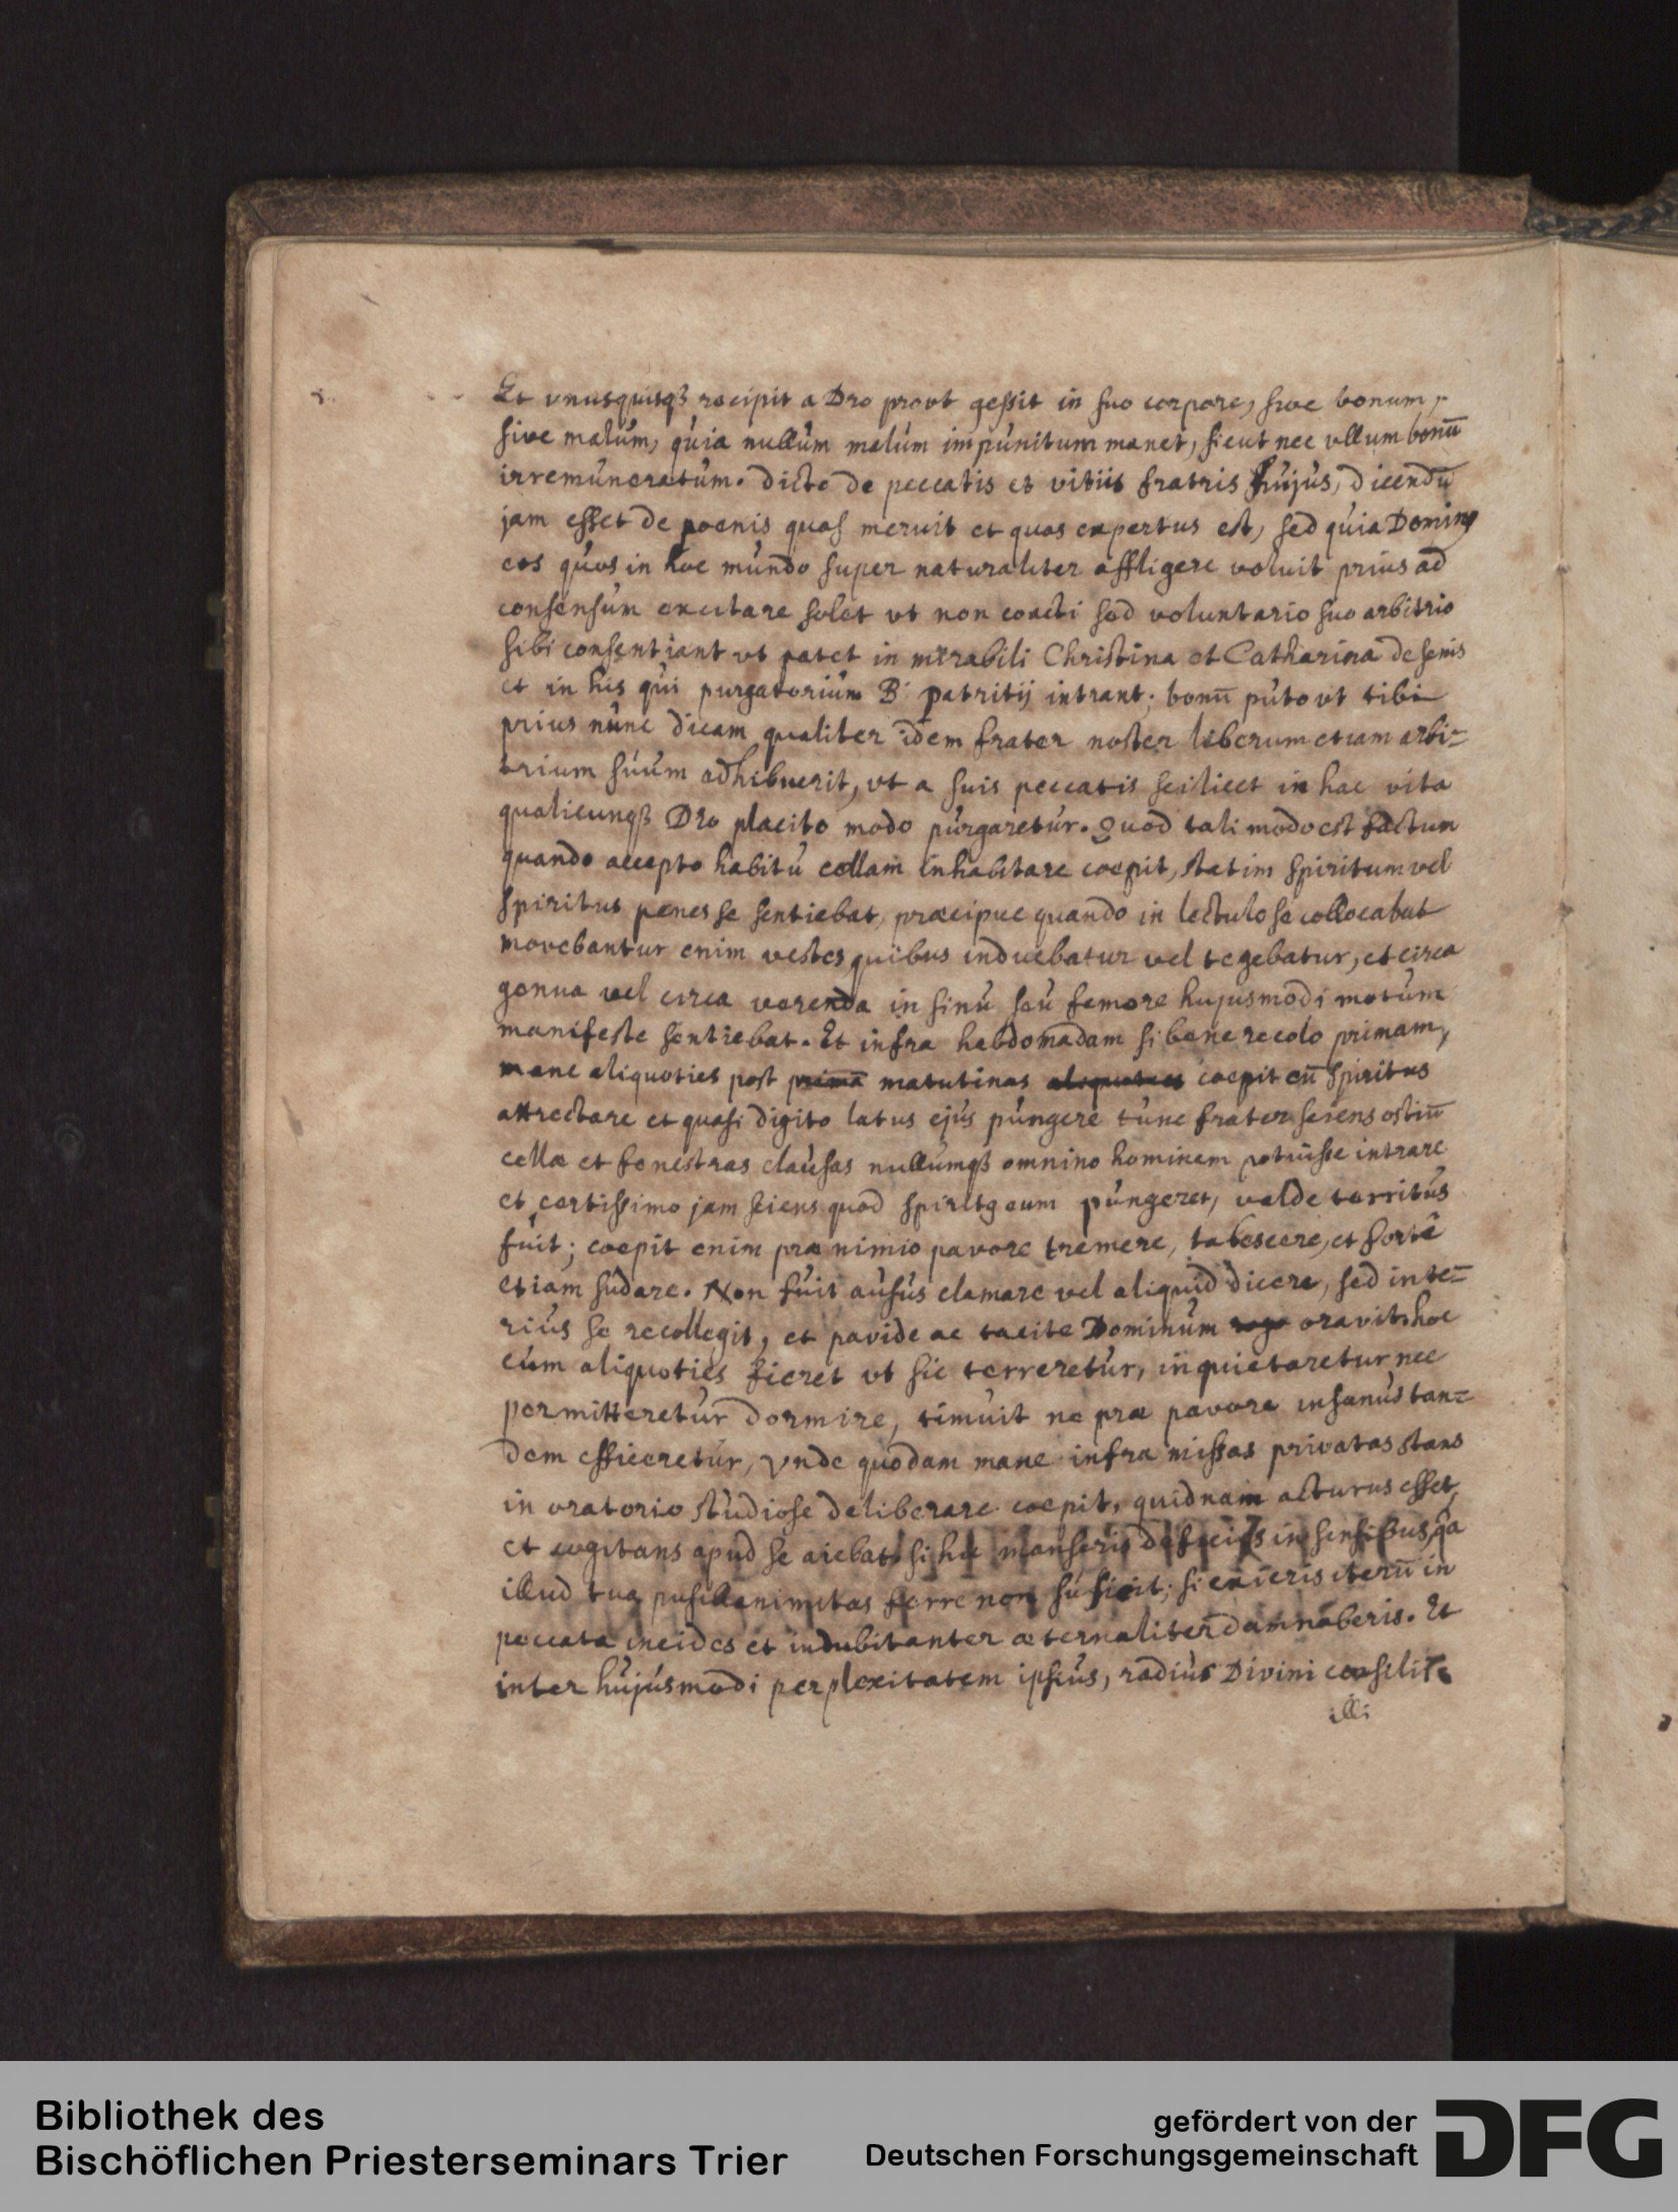 Et unusquisqß recipit a Deo prout gessit in suo corpore, sive bonum,
sive malum, quia nullum malum impunitum manet, sicut nec ullum bonū
irremuneratum. dicto de peccatis et vitiis fratris hujus, dicendū
jam esset de poenis quas meruit et quas expertus est, sed quia Dominꝰ
eos quos in hoc mundo super naturaliter affligere voluit prius ad
consensum excitare solet vt non coacti sed voluntario suo arbitrio
sibi consentiant vt patet in mirabili Christina et Catharina de senis
et in his qui purgatorium B. Patritij intrant; bonū puto vt tibi
prius nunc dicam qualiter idem frater noster liberum etiam arbi=
trium suum adhibuerit, vt a suis peccatis scilicet in hac vita
qualicunqß Deo placito modo purgaretur. Quod tali modo est factum
quando accepto habitu cellam inhabitare coepit, statim spiritum vel
spiritus penes se sentiebat, praecipue quando in lectulo se collocabat
movebantur enim vestes quibus induebatur vel tegebatur, et circa
genua vel circa verenda in sinu seu femore hujusmodi motum
manifeste sentiebat. Et infra hebdomadam si bene recolo primam,
mane aliquoties post primā matutinas aliquoties coepit eū spiritus
attrectare et quasi digito latus ejus pungere tunc frater sciens ostiū
cellae et fenestras clausas nullumqß omnino hominem potuisse intrare
et certissimo jam sciens quod spiritꝰ eum pungeret, valde territus
fuit; coepit enim prae nimio pavore tremere, tabescere, et forte
etiam sudare. Non fuit ausus clamare vel aliquid dicere, sed inte=
rius se recollegit, et pavide ac tacite Dominum roga oravit. hoc
cum aliquoties fieret vt sic terreretur, inquietaretur nec
permitteretur dormire, timuit ne prae pavore insanus tan=
dem efficeretur, Vnde quodam mane infra missas privatas stans
in oratorio studiose deliberare coepit, quidnam acturus esset,
et cogitans apud se aiebat, si hic manseris deficies in sensibus, qa
illud tua pusillanimitas ferre non suficit; si exieris iterū in
peccata incides et indubitanter aeternaliter damnaberis. Et
inter hujusmodi perplexitatem ipsius, radius Divini consilii
illi
Bibliothek des
Bischöflichen Priesterseminars Trier
gefördert von der
Deutschen Forschungsgemeinschaft
DFG